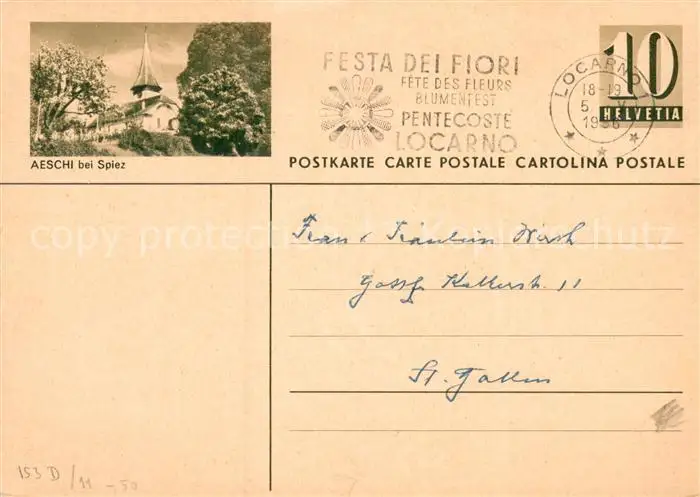 AESCHI bei Spiez
FESTA DEI FIORI
FÊTE DES FLEURS
BLUMENFEST
PENTECOSTE
LOCARNO
LOCARNO
18-19
5. V.
10
HELVETIA
POSTKARTE CARTE POSTALE CARTOLINA POSTALE
copy protection Kopierschutz
Frau & Fräulein
11
St. Gallen
153 D/11 -50